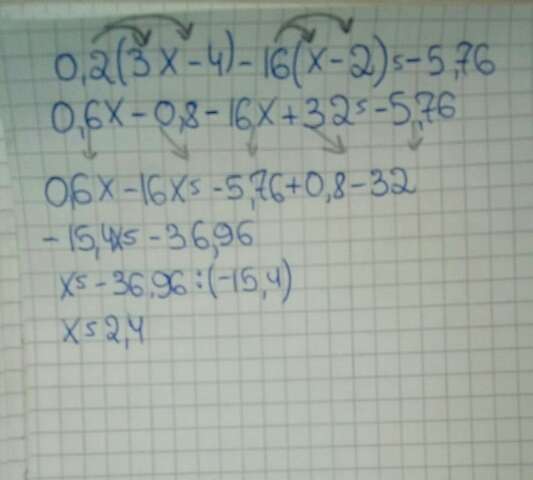 0,2(3x-4)-16(x-2)=-5,76
0,6x-0,8-16x+32=-5,76
0,6x-16x=-5,76+0,8-32
-15,4x=-36,96
x=-36,96:(-15,4)
x=2,4